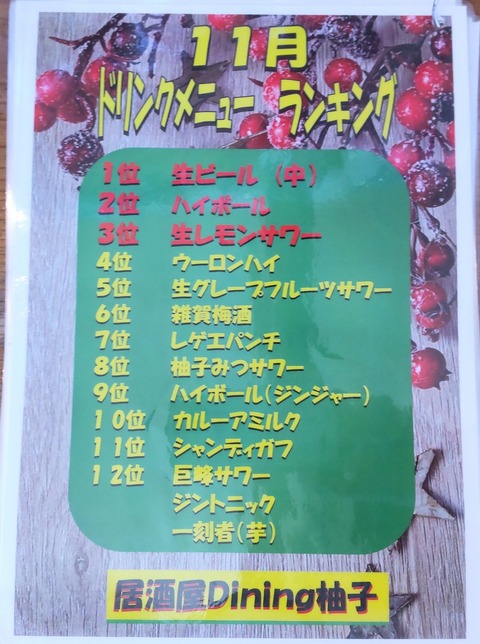 11月
ドリンクメニュー ランキング
1位 生ビール（中）
2位 ハイボール
3位 生レモンサワー
4位 ウーロンハイ
5位 生グレープフルーツサワー
6位 雑賀梅酒
7位 レゲエパンチ
8位 柚子みつサワー
9位 ハイボール（ジンジャー）
10位 カルーアミルク
11位 シャンディガフ
12位 巨峰サワー
ジントニック
一刻者（芋）
居酒屋Dining柚子